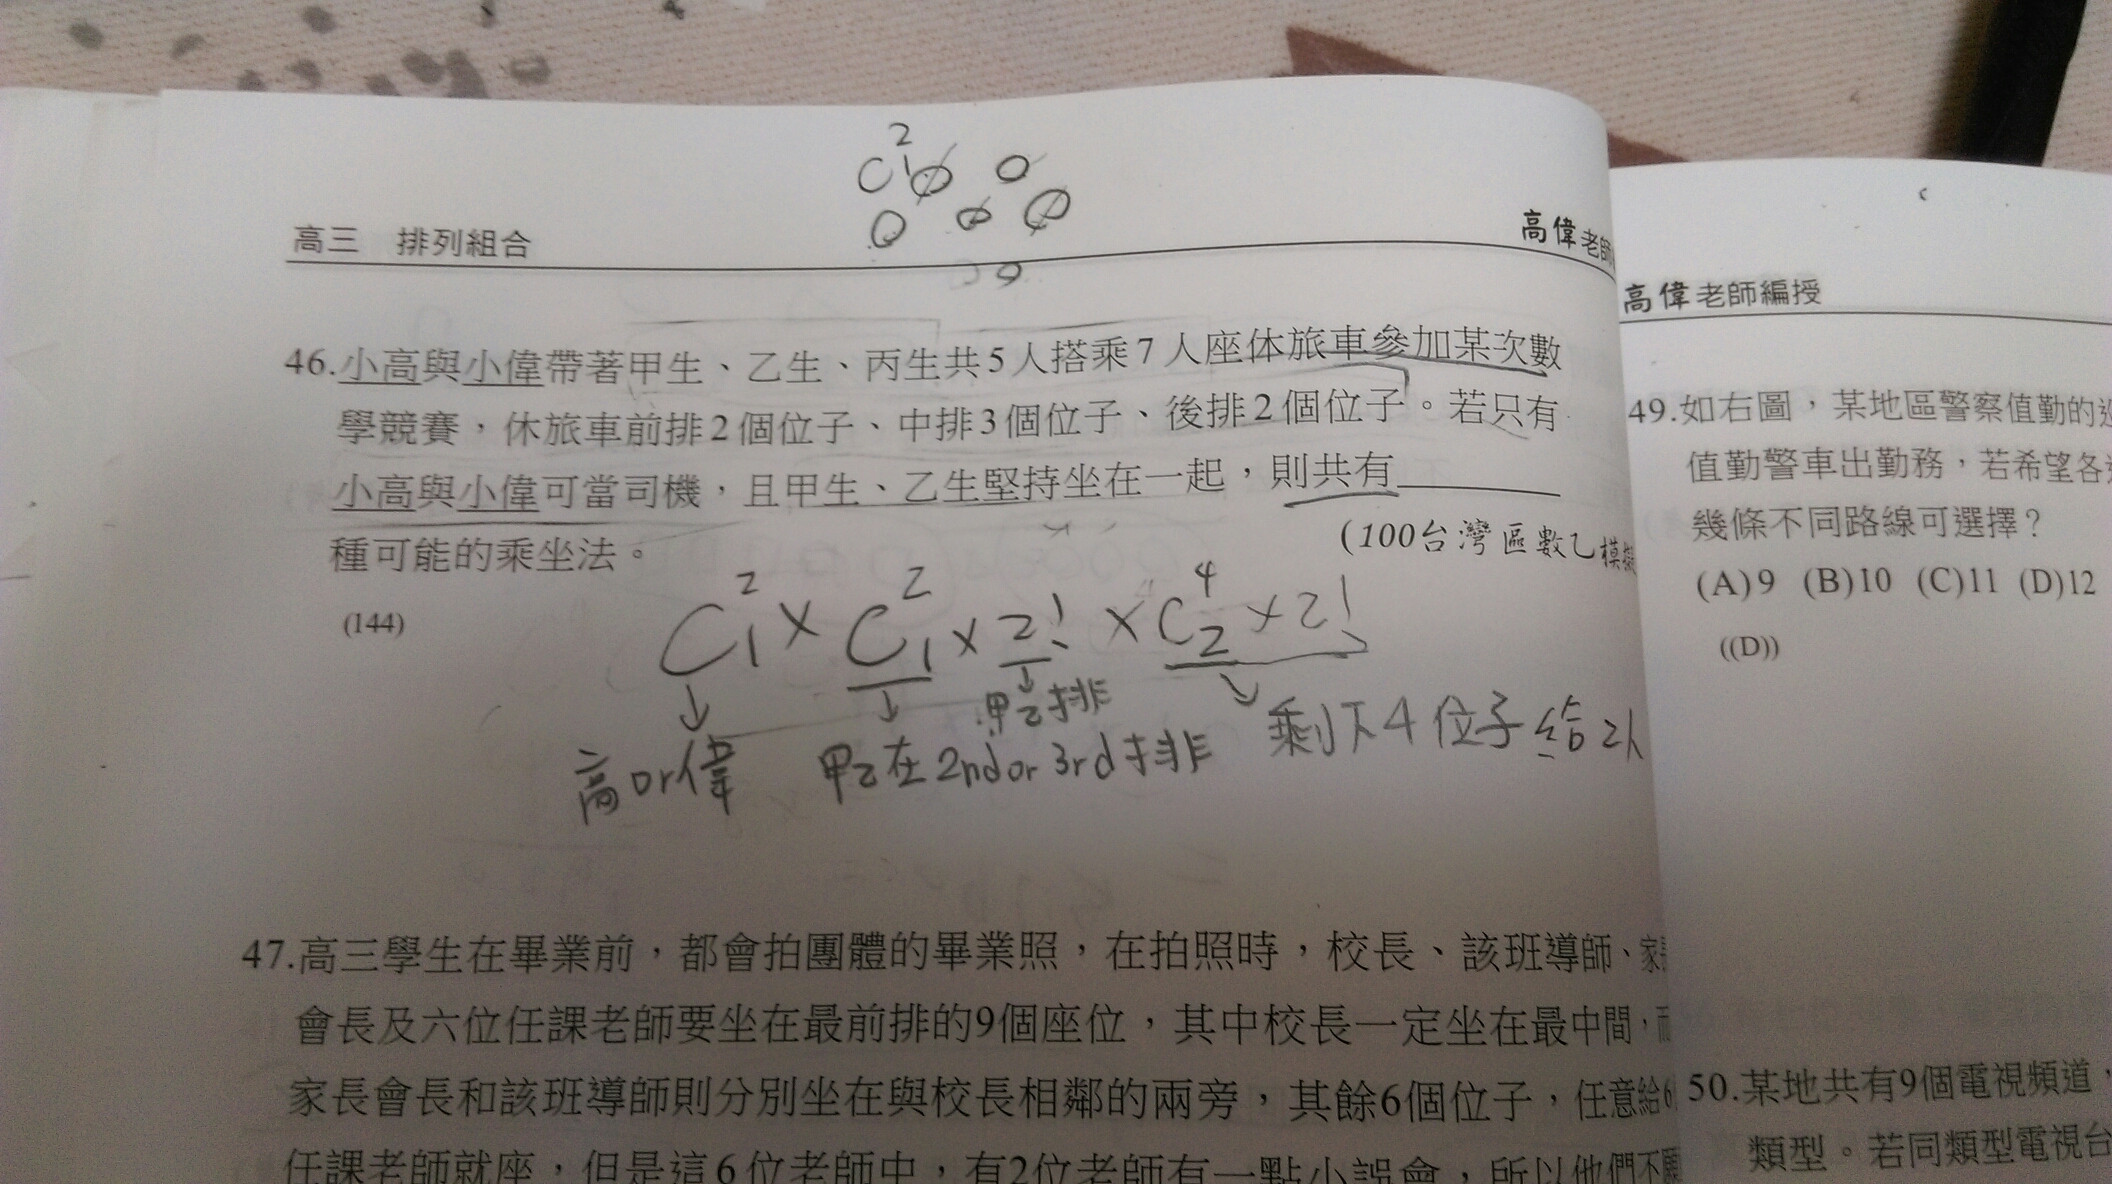 C 2 1
高三 排列組合
高偉老師
46.小高與小偉帶著甲生、乙生、丙生共5人搭乘7人座休旅車參加某次數
學競賽，休旅車前排2個位子、中排3個位子、後排2個位子。若只有
小高與小偉可當司機，且甲生、乙生堅持坐在一起，則共有
種可能的乘坐法。
(100台灣區數乙模擬
(144)
C²₁ × C²₁ × 2! × C⁴₂ × 2!
甲乙排
高or偉
甲乙在2nd or 3rd排
剩下4位子給2人
47.高三學生在畢業前，都會拍團體的畢業照，在拍照時，校長、該班導師、家長
會長及六位任課老師要坐在最前排的9個座位，其中校長一定坐在最中間，而
家長會長和該班導師則分別坐在與校長相鄰的兩旁，其餘6個位子，任意給6
任課老師就座，但是這6位老師中，有2位老師有一點小誤會，所以他們不願
高偉老師編授
49.如右圖，某地區警察值勤的巡
值勤警車出勤務，若希望各
幾條不同路線可選擇？
(A)9 (B)10 (C)11 (D)12
((D))
50.某地共有9個電視頻道，
類型。若同類型電視台